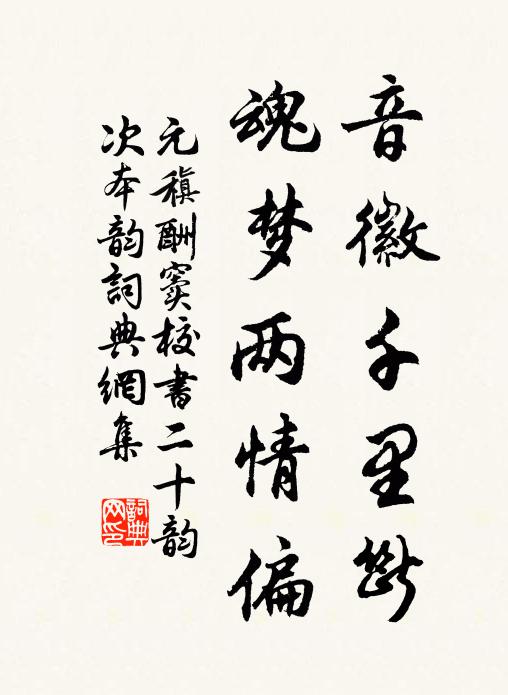 音徽千里斷
魂梦两情偏
元稹酬窦校書二十韵
次本韵詞典網集
詞典网印